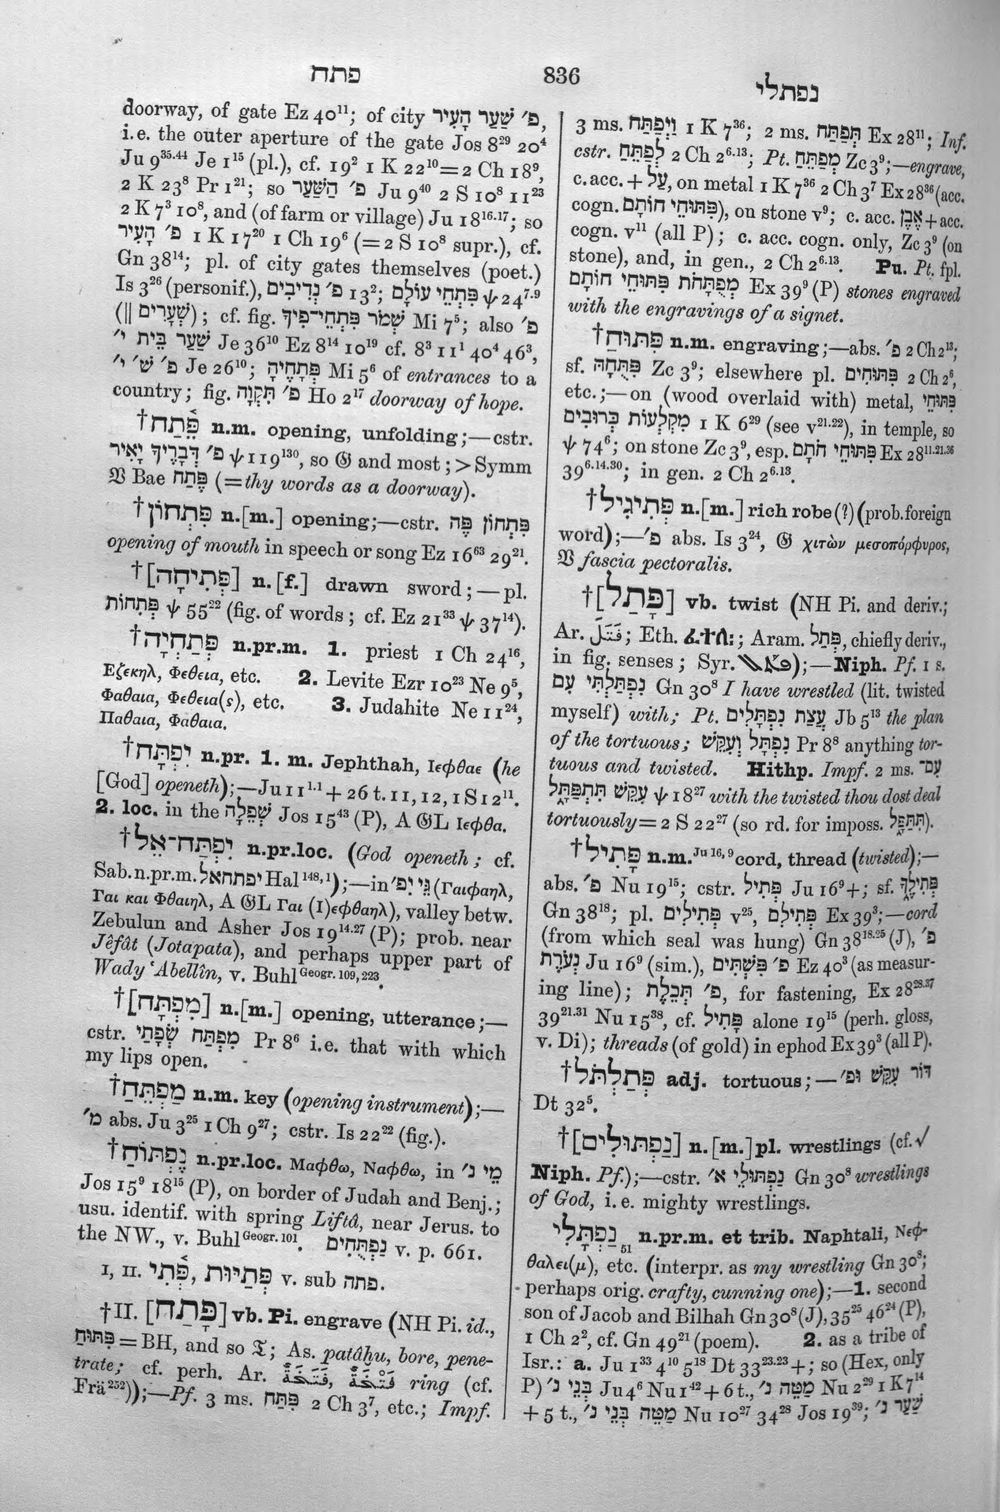 פתח
836
נפתלי
doorway, of gate Ez 40¹¹; of city פ׳ שַׁעַר הָעִיר,
i.e. the outer aperture of the gate Jos 8²⁹ 20⁴
Ju 9³⁵·⁴⁴ Je 1¹⁵ (pl.), cf. 19² 1 K 22¹⁰=2 Ch 18⁹,
2 K 23⁸ Pr 1²¹; so פ׳ הַשַּׁעַר Ju 9⁴⁰ 2 S 10⁸ 11²³
2 K 7³ 10⁸, and (of farm or village) Ju 18¹⁶·¹⁷; so
פ׳ הָעִיר 1 K 17²⁰ 1 Ch 19⁹ (=2 S 10⁸ supr.), cf.
Gn 38¹⁴; pl. of city gates themselves (poet.)
Is 3²⁶ (personif.), פ׳ נְדִיבִים 13²; פִּתְחֵי עוֹלָם ψ 24⁷·⁹
(|| שְׁעָרִים); cf. fig. שְׁמֹר פִּתְחֵי־פִיךָ Mi 7⁵; also פ׳
שַׁעַר בֵּית י׳ Je 36¹⁰ Ez 8¹⁴ 10¹⁹ cf. 8³ 11¹ 40⁴ 46³,
פ׳ שׁ׳ י׳ Je 26¹⁰; פְּתָחֶיהָ Mi 5⁶ of entrances to a
country; fig. פ׳ תִּקְוָה Ho 2¹⁷ doorway of hope.
†פֵּתַח n.m. opening, unfolding;—cstr.
פ׳ דְּבָרֶיךָ יָאִיר ψ 119¹³⁰, so 𝔊 and most; >Symm
𝔙 Bae פֶּתַח (=thy words as a doorway).
†פִּתְחוֹן n.[m.] opening;—cstr. פִּתְחוֹן פֶּה
opening of mouth in speech or song Ez 16⁶³ 29²¹.
†[פְּתִיחָה] n.[f.] drawn sword;—pl.
פְּתִחוֹת ψ 55²² (fig. of words; cf. Ez 21³³ ψ 37¹⁴).
†פְּתַחְיָה n.pr.m. 1. priest 1 Ch 24¹⁶,
Εζεκηλ, Φεθεια, etc. 2. Levite Ezr 10²³ Ne 9⁵,
Φαθαια, Φεθεια(ς), etc. 3. Judahite Ne 11²⁴,
Παθαια, Φαθαια.
†יִפְתָּח n.pr. 1. m. Jephthah, Ιεφθαε (he
[God] openeth);—Ju 11¹·¹ + 26 t. 11, 12, 1 S 12¹¹.
2. loc. in the שְׁפֵלָה Jos 15⁴³ (P), A 𝔊L Ιεφθα.
†יִפְתַּח־אֵל n.pr.loc. (God openeth; cf.
Sab. n.pr.m. יפתחאל Hal ¹⁴⁸,¹);—in גֵּי יִפ׳ (Γαιφαηλ,
Γαι και Φθαιηλ, A 𝔊L Γαι (Ι)εφθαηλ), valley betw.
Zebulun and Asher Jos 19¹⁴·²⁷ (P); prob. near
Jêfât (Jotapata), and perhaps upper part of
Wady ʿAbellîn, v. Buhl Geogr. 109, 223.
†[מִפְתָּח] n.[m.] opening, utterance;—
cstr. מִפְתַּח שְׂפָתַי Pr 8⁶ i.e. that with which
my lips open.
†מַפְתֵּחַ n.m. key (opening instrument);—
מ׳ abs. Ju 3²⁵ 1 Ch 9²⁷; cstr. Is 22²² (fig.).
†נֶפְתּוֹחַ n.pr.loc. Μαφθω, Ναφθω, in מֵי נ׳
Jos 15⁹ 18¹⁵ (P), on border of Judah and Benj.;
usu. identif. with spring Liftâ, near Jerus. to
the NW., v. Buhl Geogr. 101. נַפְתֻּחִים v. p. 661.
I, II. פְּתִי, פְּתַיּוּת v. sub פתה.
†II. [פָּתַח] vb. Pi. engrave (NH Pi. id.,
פִּתּוּחַ = BH, and so 𝔗; As. patâḫu, bore, pene-
trate; cf. perh. Ar. فَتْخَةٌ, فَتَخَةٌ ring (cf.
Frä ²⁵²));—Pf. 3 ms. פִּתַּח 2 Ch 3⁷, etc.; Impf.
3 ms. וַיְפַתַּח 1 K 7³⁶; 2 ms. תְּפַתַּח Ex 28¹¹; Inf.
cstr. לְפַתֵּחַ 2 Ch 2⁶·¹³; Pt. מְפַתֵּחַ Zc 3⁹;—engrave,
c. acc. + עַל, on metal 1 K 7³⁶ 2 Ch 3⁷ Ex 28³⁶ (acc.
cogn. פִּתּוּחֵי חוֹתָם), on stone v⁹; c. acc. אֶבֶן + acc.
cogn. v¹¹ (all P); c. acc. cogn. only, Zc 3⁹ (on
stone), and, in gen., 2 Ch 2⁶·¹³. Pu. Pt. fpl.
מְפֻתָּחֹת פִּתּוּחֵי חוֹתָם Ex 39⁶ (P) stones engraved
with the engravings of a signet.
†פִּתּוּחַ n.m. engraving;—abs. פ׳ 2 Ch 2¹³;
sf. פִּתֻּחָהּ Zc 3⁹; elsewhere pl. פִּתּוּחִים 2 Ch 2⁶,
etc.;—on (wood overlaid with) metal, פִּתּוּחֵי
מִקְלְעוֹת כְּרוּבִים 1 K 6²⁹ (see v²¹·²²), in temple, so
ψ 74⁶; on stone Zc 3⁹, esp. פִּתּוּחֵי חֹתָם Ex 28¹¹·²¹·³⁶
39⁶·¹⁴·³⁰; in gen. 2 Ch 2⁶·¹³.
†פְּתִיגִיל n.[m.] rich robe (?) (prob. foreign
word);—פ׳ abs. Is 3²⁴, 𝔊 χιτὼν μεσοπόρφυρος,
𝔙 fascia pectoralis.
†[פָּתַל] vb. twist (NH Pi. and deriv.;
Ar. فَتَلَ; Eth. ፈተለ:; Aram. פְּתַל, chiefly deriv.,
in fig. senses; Syr. ܦܬܠ);—Niph. Pf. 1 s.
נִפְתַּלְתִּי עִם Gn 30⁸ I have wrestled (lit. twisted
myself) with; Pt. עֲצַת נִפְתָּלִים Jb 5¹³ the plan
of the tortuous; נִפְתָּל וְעִקֵּשׁ Pr 8⁸ anything tor-
tuous and twisted. Hithp. Impf. 2 ms. עִם־
עִקֵּשׁ תִּתְפַּתָּל ψ 18²⁷ with the twisted thou dost deal
tortuously = 2 S 22²⁷ (so rd. for imposs. תִּתַּפָּל).
†פָּתִיל n.m. Ju 16, 9 cord, thread (twisted);—
abs. פ׳ Nu 19¹⁵; cstr. פְּתִיל Ju 16⁹+; sf. פְּתִילֶךָ
Gn 38¹⁸; pl. פְּתִילִים v²⁵, פְּתִילִם Ex 39³;—cord
(from which seal was hung) Gn 38¹⁸·²⁵ (J), פ׳
נְעֹרֶת Ju 16⁹ (sim.), פ׳ פִּשְׁתִּים Ez 40³ (as measur-
ing line); פ׳ תְּכֵלֶת, for fastening, Ex 28²⁸·³⁷
39²¹·³¹ Nu 15³⁸, cf. פָּתִיל alone 19¹⁵ (perh. gloss,
v. Di); threads (of gold) in ephod Ex 39³ (all P).
†פְּתַלְתֹּל adj. tortuous;—דּוֹר עִקֵּשׁ וּפ׳
Dt 32⁵.
†[נַפְתּוּלִים] n.[m.]pl. wrestlings (cf. √
Niph. Pf.);—cstr. נַפְתּוּלֵי א׳ Gn 30⁸ wrestlings
of God, i.e. mighty wrestlings.
נַפְתָּלִי ₅₁ n.pr.m. et trib. Naphtali, Νεφ-
θαλει(μ), etc. (interpr. as my wrestling Gn 30⁸;
perhaps orig. crafty, cunning one);—1. second
son of Jacob and Bilhah Gn 30⁸ (J), 35²⁵ 46²⁴ (P),
1 Ch 2², cf. Gn 49²¹ (poem). 2. as a tribe of
Isr.: a. Ju 1³³ 4¹⁰ 5¹⁸ Dt 33²³·²³+; so (Hex, only
P) בְּנֵי נ׳ Ju 4⁶ Nu 1⁴² + 6 t., מַטֵּה נ׳ Nu 2²⁹ 1 K 7¹⁴
+ 5 t., מַטֵּה בְּנֵי נ׳ Nu 10²⁷ 34²⁸ Jos 19³⁹; שַׁעַר נ׳